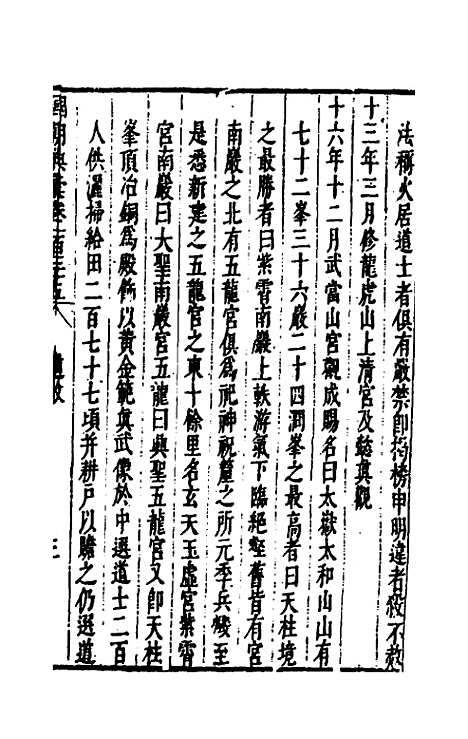 法稱火居道士者俱有嚴禁即揭榜申明違者殺不赦
十三年三月修龍虎山上清宮及懿真觀
十六年十二月武當山宮觀成賜名曰太嶽太和山山有
七十二峯三十六巖二十四澗峯之最高者曰天柱境
之最勝者曰紫霄南巖上軼游氣下臨絕壑舊皆有宮
南巖之北有五龍宮俱為祀神祝釐之所元季兵燬至
是悉新建之五龍宮之東十餘里名玄天玉虛宮紫霄
宮南巖曰大聖南巖宮五龍曰興聖五龍宮又即天柱
峯頂冶銅為殿飾以黃金範真武像於中選道士二百
人供灑掃給田二百七十七頃并耕戶以贍之仍選道
國朝典彙卷
三